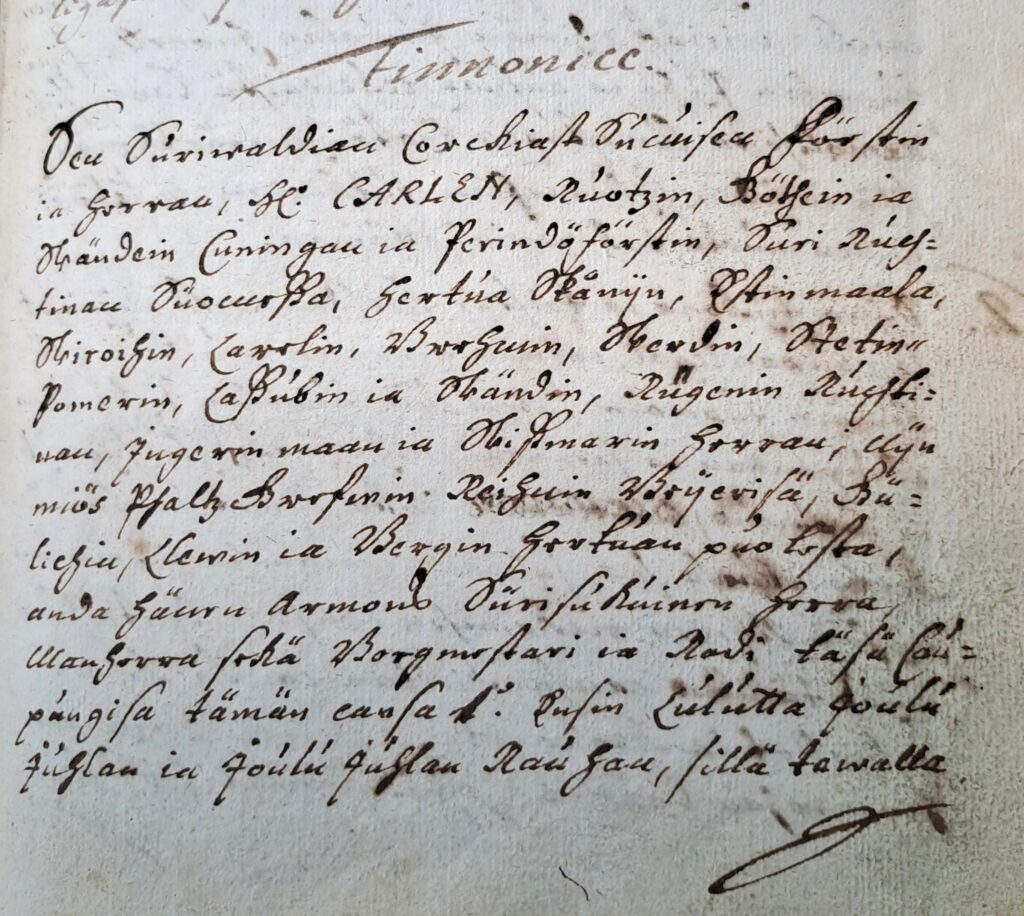 Finnonice.
Sen Suriwaldian Corckiast Sucuisen Förstin
ia Herran, Hl: CARLEN, Ruotzin, Göthein ia
Wändein Cuningan ia Perindöförstin, Suri Ruch=
tinan Suomessa, Hertua Skånijn, Estinmaala,
Wiroihin, Carelin, Brehmin, Werdin, Stetin=
Pomerin, Cassubin ia Wändin, Rügenin Ruchti=
nan, Ingerin maan ia Wissmarin Herran, Nijn
miös Pfaltz Grefwin Reihnin Beijerisä, Gü=
lichin, Clewin ia Bergin Hertuan puolesta,
anda hänen Armons Surisukuinen Herra
Manherra sekä Borgmestari ia Radi täsä Cau=
pungisa tämän cansa Ensin Cululta Joulu
Juhlan ia Joulu Juhlan Rauhan, sillä tawalla